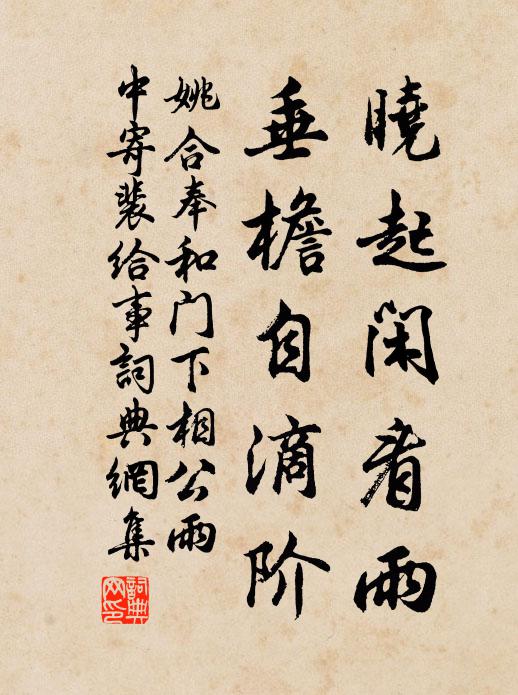 曉起闲看雨
垂檐自滴阶
姚合奉和门下相公雨
中寄裴给事詞典網集